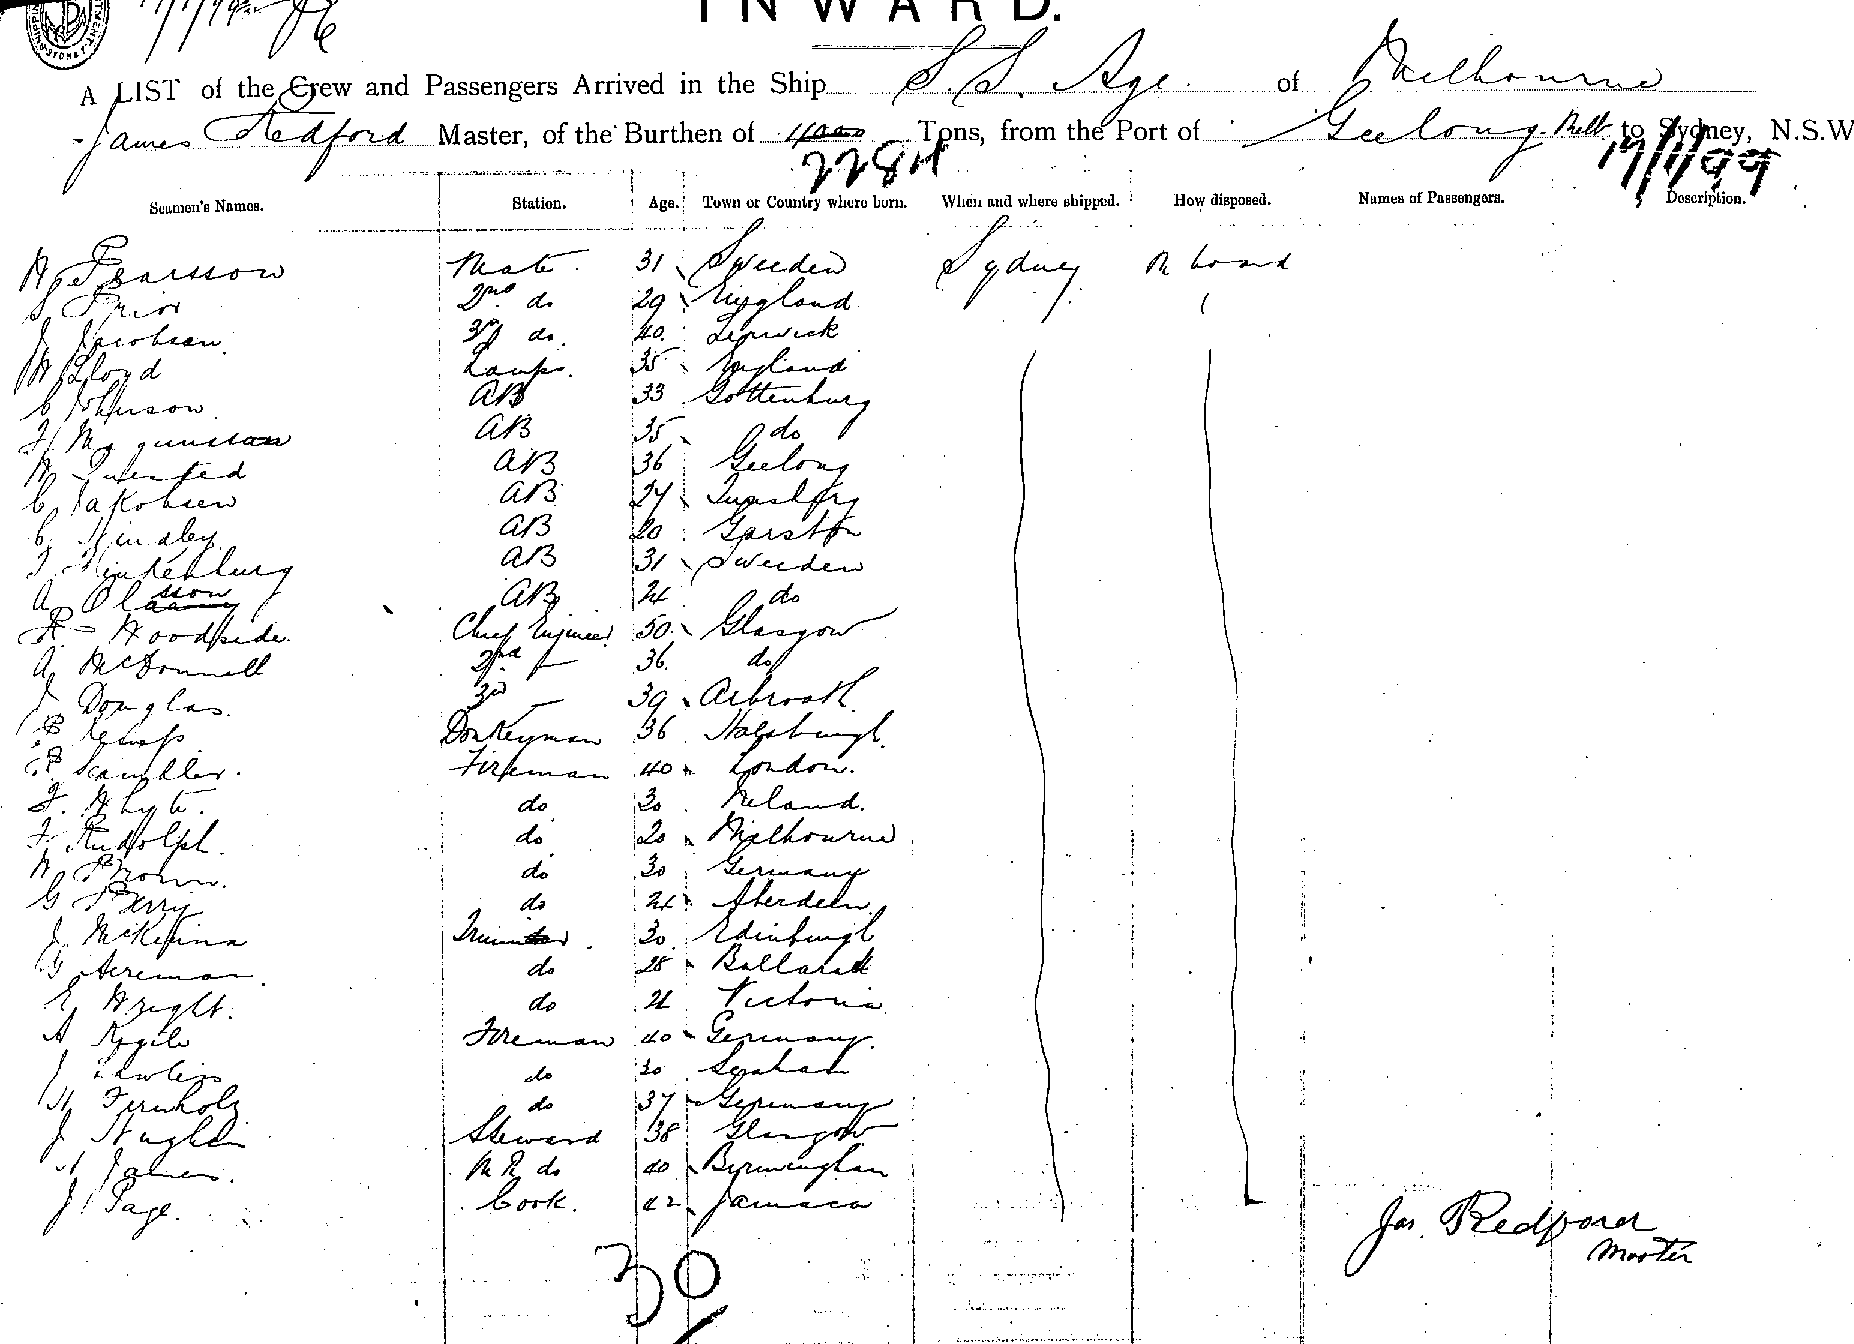 INWARD.
A LIST of the Crew and Passengers Arrived in the Ship S.S. Age. of Melbourne
James Redford Master, of the Burthen of Tons, from the Port of Geelong Melb to Sydney, N.S.W
2284 17/1/99
Seamen's Names. Station. Age. Town or Country where born. When and where shipped. How disposed. Names of Passengers. Description.
Pearsson Mate. 31 Sweden Sydney On board
S Prior 2nd do 29 England
J Jacobsen 3rd do. 40. Lerwick
W Lloyd Lamps. 35 England
C Johnson AB 33 Gottenburg
AB 35 do
W Quested AB 36 Geelong
C Jakobsen AB 27
C Hindley AB 20 Garston
AB 31 Sweden
A Olsson AB 24 do
R Woodside. Chief Engineer 50. Glasgow
A McDonnell 2nd 36. do
J Douglas. 3rd 39 Arbroath
Kemp Donkeyman 36
Scambler. Fireman 40 London.
F. Whyte. do 30 Ireland.
F. Rudolph. do 20 Melbourne
W Brown. do 30 Germany
G Perry do 24 Aberdeen
J. McKenna Trimmer. 30 Edinburgh
G do 28 Ballarat
E Wright. do 21 Victoria
A Fireman 40 Germany.
J Lawless do 30 Seaham
H Fernholz do 37 Germany
J Steward 38 Glasgow
H James. do 40 Birmingham
J Page. Cook. 42 Jamaica
Jas. Redford
Master
30